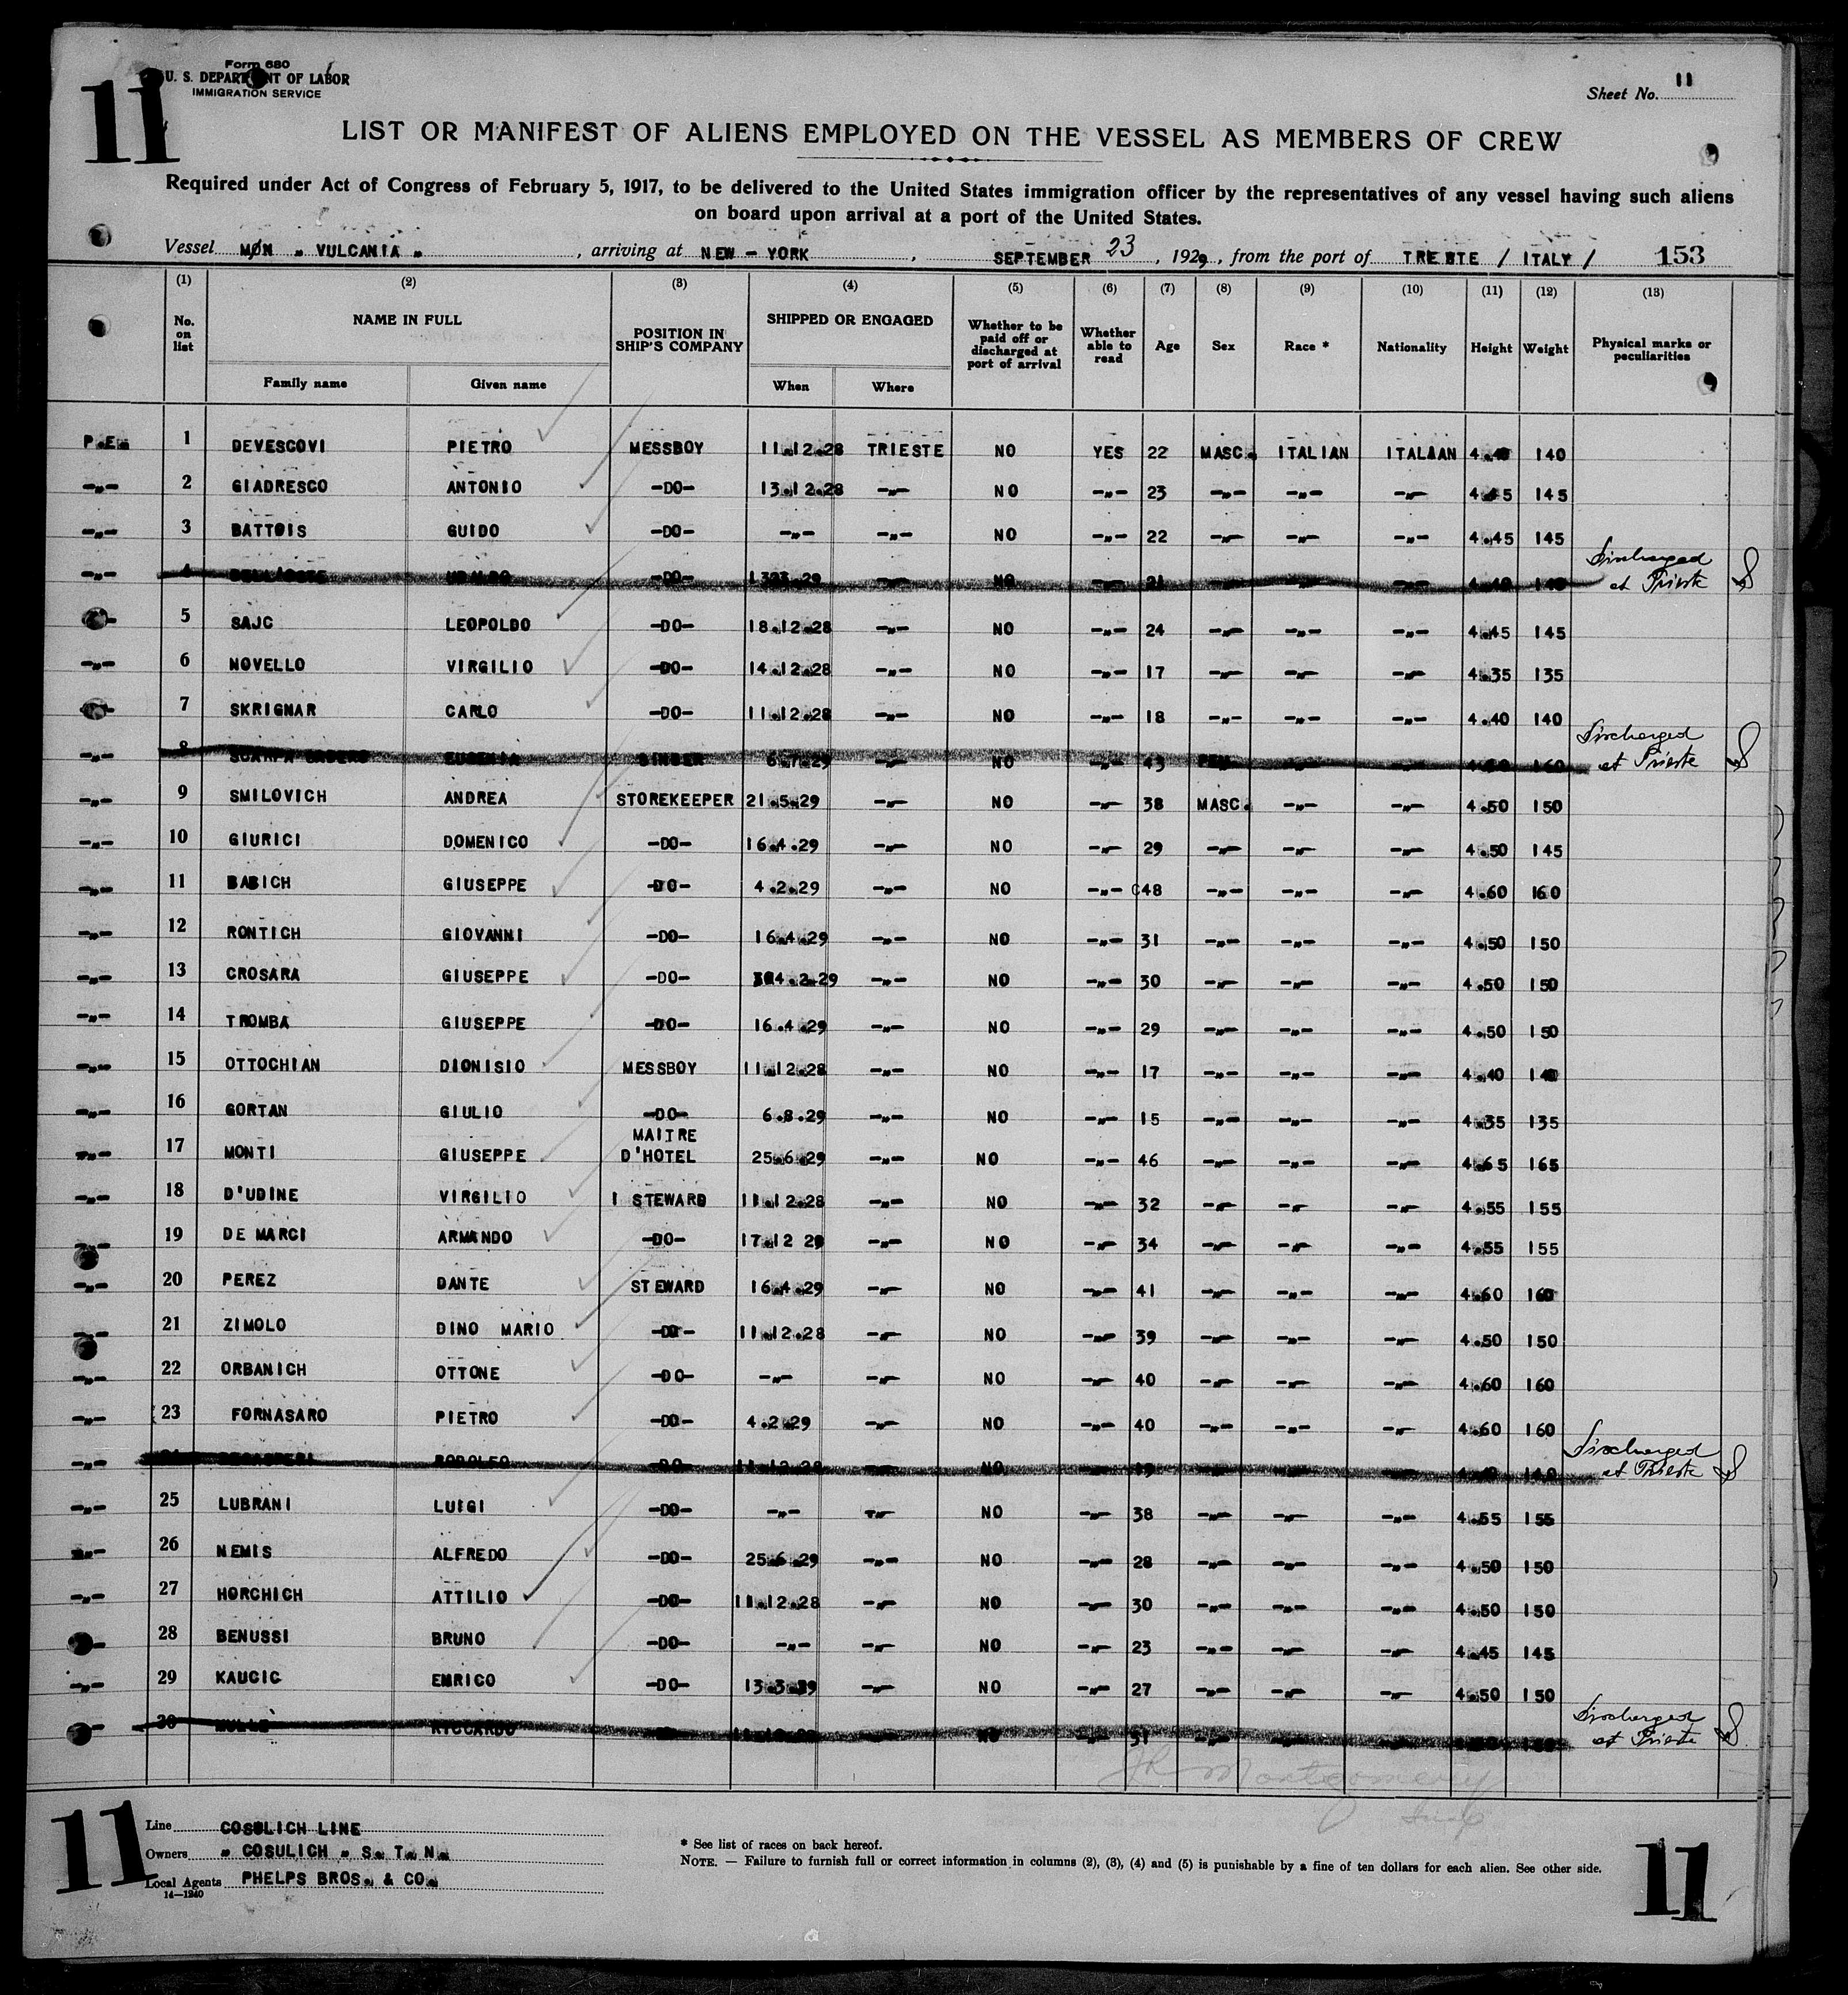 11
Form 680
U. S. DEPARTMENT OF LABOR
IMMIGRATION SERVICE
Sheet No. 11
LIST OR MANIFEST OF ALIENS EMPLOYED ON THE VESSEL AS MEMBERS OF CREW
Required under Act of Congress of February 5, 1917, to be delivered to the United States immigration officer by the representatives of any vessel having such aliens
on board upon arrival at a port of the United States.
Vessel MØN „ VULCANIA „ , arriving at NEW – YORK , SEPTEMBER 23 , 1929 , from the port of TRIESTE / ITALY / 153
(1) (2) (3) (4) (5) (6) (7) (8) (9) (10) (11) (12) (13)
No. on list NAME IN FULL POSITION IN SHIP'S COMPANY SHIPPED OR ENGAGED Whether to be paid off or discharged at port of arrival Whether able to read Age Sex Race * Nationality Height Weight Physical marks or peculiarities
Family name Given name When Where
P.E. 1 DEVESCOVI PIETRO MESSBOY 11.12.28 TRIESTE NO YES 22 MASC. ITALIAN ITALIAN 4.40 140
–„– 2 GIADRESCO ANTONIO –DO– 13.12.28 –„– NO –„– 23 –„– –„– –„– 4.45 145
–„– 3 BATTOIS GUIDO –DO– –„– –„– NO –„– 22 –„– –„– –„– 4.45 145
–„– 4 –DO– –„– NO –„– 21 –„– –„– –„– 4.40 140 Discharged at Trieste
–„– 5 SAJC LEOPOLDO –DO– 18.12.28 –„– NO –„– 24 –„– –„– –„– 4.45 145
–„– 6 NOVELLO VIRGILIO –DO– 14.12.28 –„– NO –„– 17 –„– –„– –„– 4.35 135
–„– 7 SKRIGNAR CARLO –DO– 11.12.28 –„– NO –„– 18 –„– –„– –„– 4.40 140
–„– 8 EUGENIA SINGER 6.7.29 –„– NO –„– 43 FEM. –„– –„– 160 Discharged at Trieste
–„– 9 SMILOVICH ANDREA STOREKEEPER 21.5.29 –„– NO –„– 38 MASC. –„– –„– 4.50 150
–„– 10 GIURICI DOMENICO –DO– 16.4.29 –„– NO –„– 29 –„– –„– –„– 4.50 145
–„– 11 BABICH GIUSEPPE –DO– 4.2.29 –„– NO –„– 48 –„– –„– –„– 4.60 160
–„– 12 RONTICH GIOVANNI –DO– 16.4.29 –„– NO –„– 31 –„– –„– –„– 4.50 150
–„– 13 CROSARA GIUSEPPE –DO– 4.2.29 –„– NO –„– 30 –„– –„– –„– 4.50 150
–„– 14 TROMBA GIUSEPPE –DO– 16.4.29 –„– NO –„– 29 –„– –„– –„– 4.50 150
–„– 15 OTTOCHIAN DIONISIO MESSBOY 11.12.28 –„– NO –„– 17 –„– –„– –„– 4.40 140
–„– 16 GORTAN GIULIO –DO– 6.8.29 –„– NO –„– 15 –„– –„– –„– 4.35 135
–„– 17 MONTI GIUSEPPE MAITRE D'HOTEL 25.6.29 –„– NO –„– 46 –„– –„– –„– 4.65 165
–„– 18 D'UDINE VIRGILIO I STEWARD 11.12.28 –„– NO –„– 32 –„– –„– –„– 4.55 155
–„– 19 DE MARCI ARMANDO –DO– 17.12 29 –„– NO –„– 34 –„– –„– –„– 4.55 155
–„– 20 PEREZ DANTE STEWARD 16.4.29 –„– NO –„– 41 –„– –„– –„– 4.60 160
–„– 21 ZIMOLO DINO MARIO –DO– 11.12.28 –„– NO –„– 39 –„– –„– –„– 4.50 150
–„– 22 ORBANICH OTTONE –DO– –„– –„– NO –„– 40 –„– –„– –„– 4.60 160
–„– 23 FORNASARO PIETRO –DO– 4.2.29 –„– NO –„– 40 –„– –„– –„– 4.60 160
–„– RODOLFO –DO– 11.12.28 –„– NO –„– –„– –„– –„– 140 Discharged at Trieste
–„– 25 LUBRANI LUIGI –DO– –„– –„– NO –„– 38 –„– –„– –„– 4.55 155
–„– 26 NEMIS ALFREDO –DO– 25.6.29 –„– NO –„– 28 –„– –„– –„– 4.50 150
–„– 27 HORCHICH ATTILIO –DO– 11.12.28 –„– NO –„– 30 –„– –„– –„– 4.50 150
–„– 28 BENUSSI BRUNO –DO– –„– –„– NO –„– 23 –„– –„– –„– 4.45 145
–„– 29 KAUCIC ENRICO –DO– 13.3.29 –„– NO –„– 27 –„– –„– –„– 4.50 150
–„– 30 RICCARDO –„– NO –„– 31 –„– –„– –„– Discharged at Trieste
Montgomery
11
Line COSULICH LINE
Owners „ COSULICH „ S. T. N.
Local Agents PHELPS BROS. & CO.
14—1240
* See list of races on back hereof.
NOTE. — Failure to furnish full or correct information in columns (2), (3), (4) and (5) is punishable by a fine of ten dollars for each alien. See other side.
11